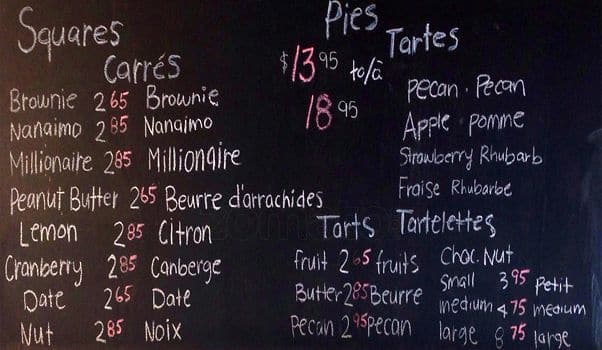 Squares
Carrés
Brownie 2 65 Brownie
Nanaimo 2 85 Nanaimo
Millionaire 2 85 Millionaire
Peanut Butter 2 65 Beurre d'arrachides
Lemon 2 85 Citron
Cranberry 2 85 Canberge
Date 2 65 Date
Nut 2 85 Noix
Pies
Tartes
$13 95 to/à
18 95
Pecan · Pecan
Apple · pomme
Strawberry Rhubarb
Fraise Rhubarbe
Tarts Tartelettes
fruit 2 65 fruits
Butter 2 85 Beurre
Pecan 2 95 pecan
Choc. Nut
Small 3 95 Petit
medium 4 75 medium
large 8 75 large